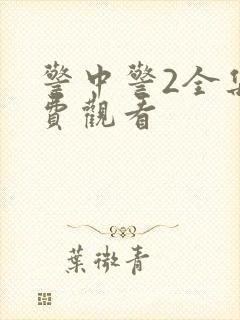 警中警2全集
費觀看
葉微青